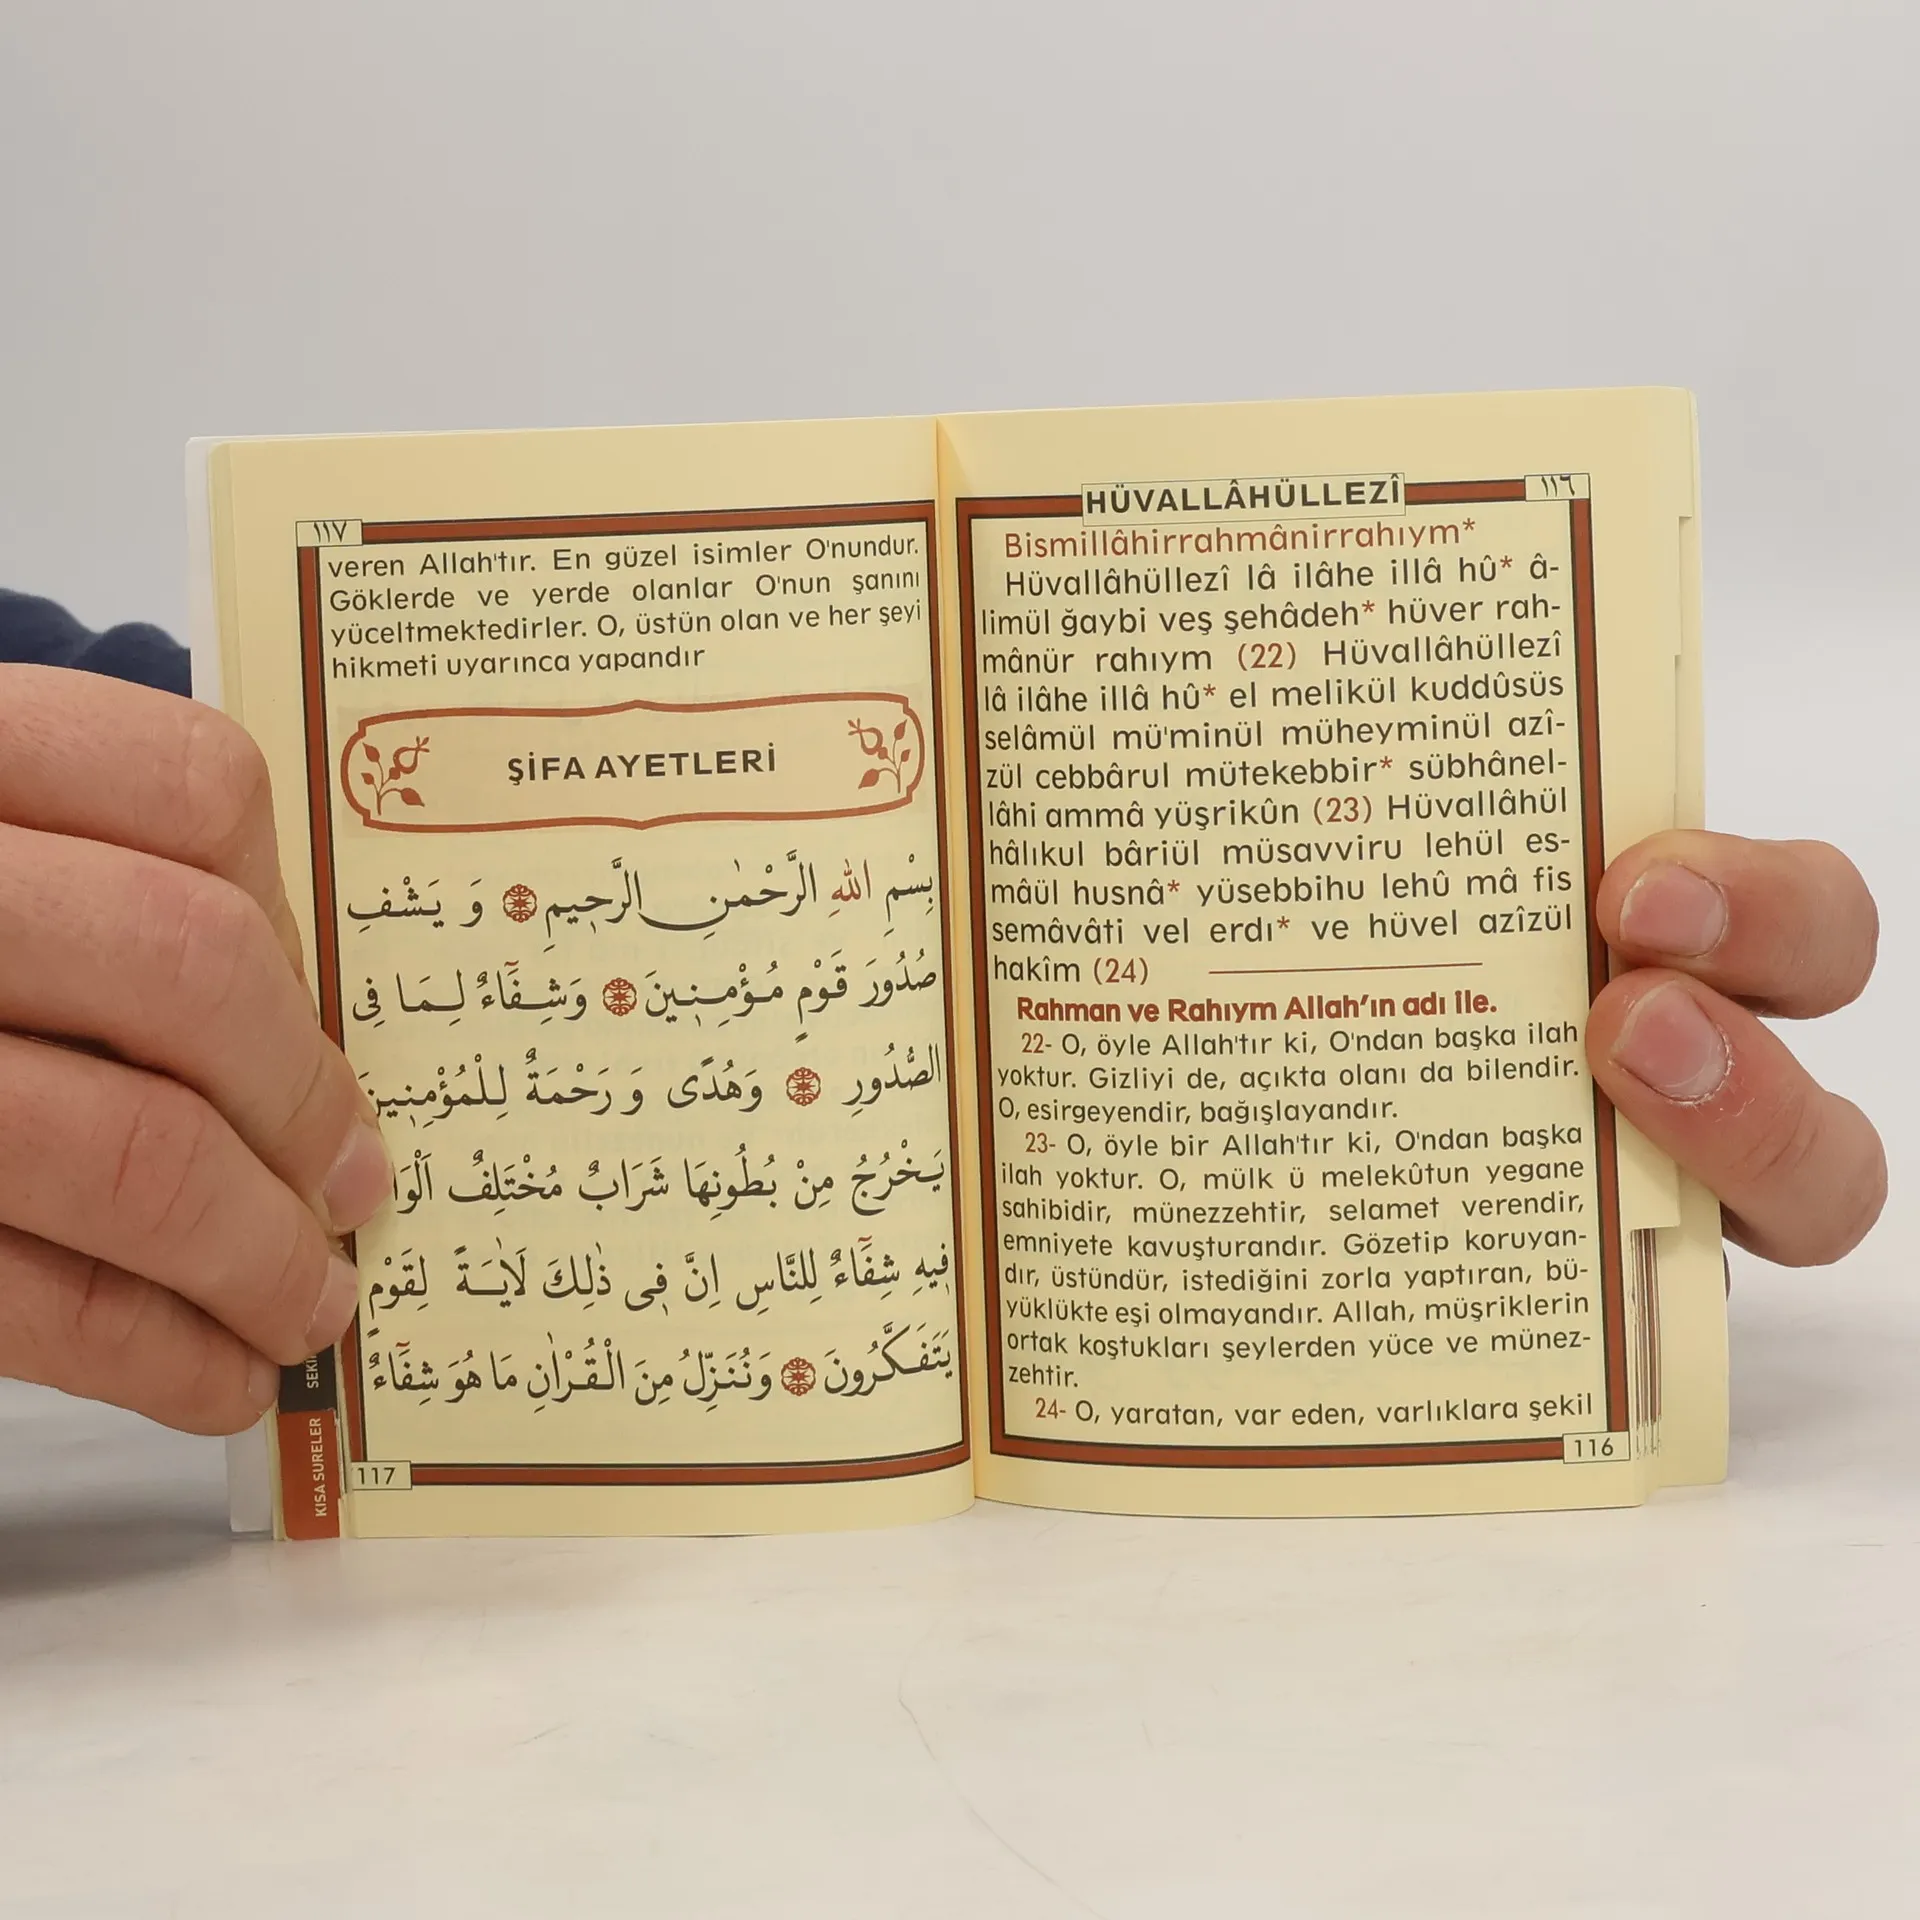 HÜVALLÂHÜLLEZÎ
١١٦
Bismillâhirrahmânirrahıym*
Hüvallâhüllezî lâ ilâhe illâ hû* â-
limül ğaybi veş şehâdeh* hüver rah-
mânür rahıym (22) Hüvallâhüllezî
lâ ilâhe illâ hû* el melikül kuddûsüs
selâmül mü'minül müheyminül azî-
zül cebbârul mütekebbir* sübhânel-
lâhi ammâ yüşrikûn (23) Hüvallâhül
hâlıkul bâriül müsavviru lehül es-
mâül husnâ* yüsebbihu lehû mâ fis
semâvâti vel erdı* ve hüvel azîzül
hakîm (24)
Rahman ve Rahıym Allah'ın adı ile.
22- O, öyle Allah'tır ki, O'ndan başka ilah
yoktur. Gizliyi de, açıkta olanı da bilendir.
O, esirgeyendir, bağışlayandır.
23- O, öyle bir Allah'tır ki, O'ndan başka
ilah yoktur. O, mülk ü melekûtun yegane
sahibidir, münezzehtir, selamet verendir,
emniyete kavuşturandır. Gözetip koruyan-
dır, üstündür, istediğini zorla yaptıran, bü-
yüklükte eşi olmayandır. Allah, müşriklerin
ortak koştukları şeylerden yüce ve münez-
zehtir.
24- O, yaratan, var eden, varlıklara şekil
116
١١٧
veren Allah'tır. En güzel isimler O'nundur.
Göklerde ve yerde olanlar O'nun şanını
yüceltmektedirler. O, üstün olan ve her şeyi
hikmeti uyarınca yapandır
ŞİFA AYETLERİ
بِسْمِ اللهِ الرَّحْمٰنِ الرَّحِيمِ وَ يَشْفِ
صُدُورَ قَوْمٍ مُؤْمِنِينَ وَشِفَٓاءٌ لِمَا فِى
الصُّدُورِ وَهُدًى وَ رَحْمَةٌ لِلْمُؤْمِنِينَ
يَخْرُجُ مِنْ بُطُونِهَا شَرَابٌ مُخْتَلِفٌ اَلْوَا
فِيهِ شِفَٓاءٌ لِلنَّاسِ اِنَّ فِى ذٰلِكَ لَاٰيَةً لِقَوْمٍ
يَتَفَكَّرُونَ وَنُنَزِّلُ مِنَ الْقُرْاٰنِ مَا هُوَ شِفَٓاءٌ
117
KISA SURELER